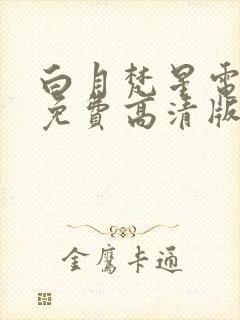 白月梵星電
免費高清版
金鷹卡通